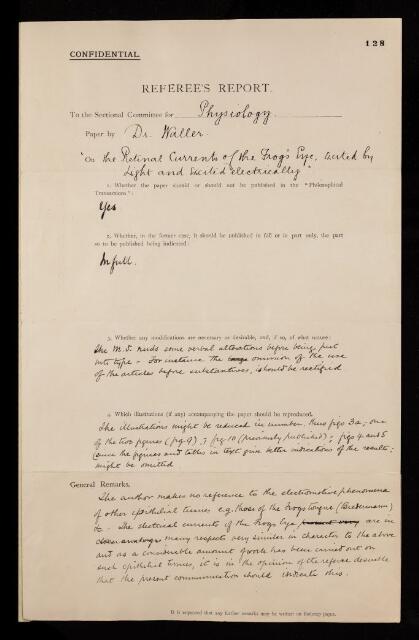 128
CONFIDENTIAL.
REFEREE'S REPORT.
To the Sectional Committee for Physiology.
Paper by Dr. Waller.
"On the Retinal Currents of the Frog's Eye, excited by
Light and excited electrically"
1. Whether the paper should or should not be published in the "Philosophical
Transactions":
Yes
2. Whether, in the former case, it should be published in full or in part only, the part
so to be published being indicated:
In full.
3. Whether any modifications are necessary or desirable, and, if so, of what nature:
The M.S. needs some verbal alterations before being put
into type - For instance the omission of the use
of the articles before substantives, should be rectified
4. Which illustrations (if any) accompanying the paper should be reproduced.
The illustrations might be reduced in number, thus figs 3a, one
of the two figures (fig 9), fig 10 (previously published), figs 4 and 5
(since the figures and tables in text give better indications of the results)
might be omitted
General Remarks.
The author makes no reference to the electromotive phenomena
of other epithelial tissues e.g. those of the frog's tongue (Biedermann)
etc - The electrical currents of the frog's eye present very are in
many respects very similar in character to the above
and as a considerable amount of work has been carried out on
such epithelial tissues, it is in the opinion of the referee desirable
that the present communication should indicate this.
It is requested that any further remarks may be written on foolscap paper.